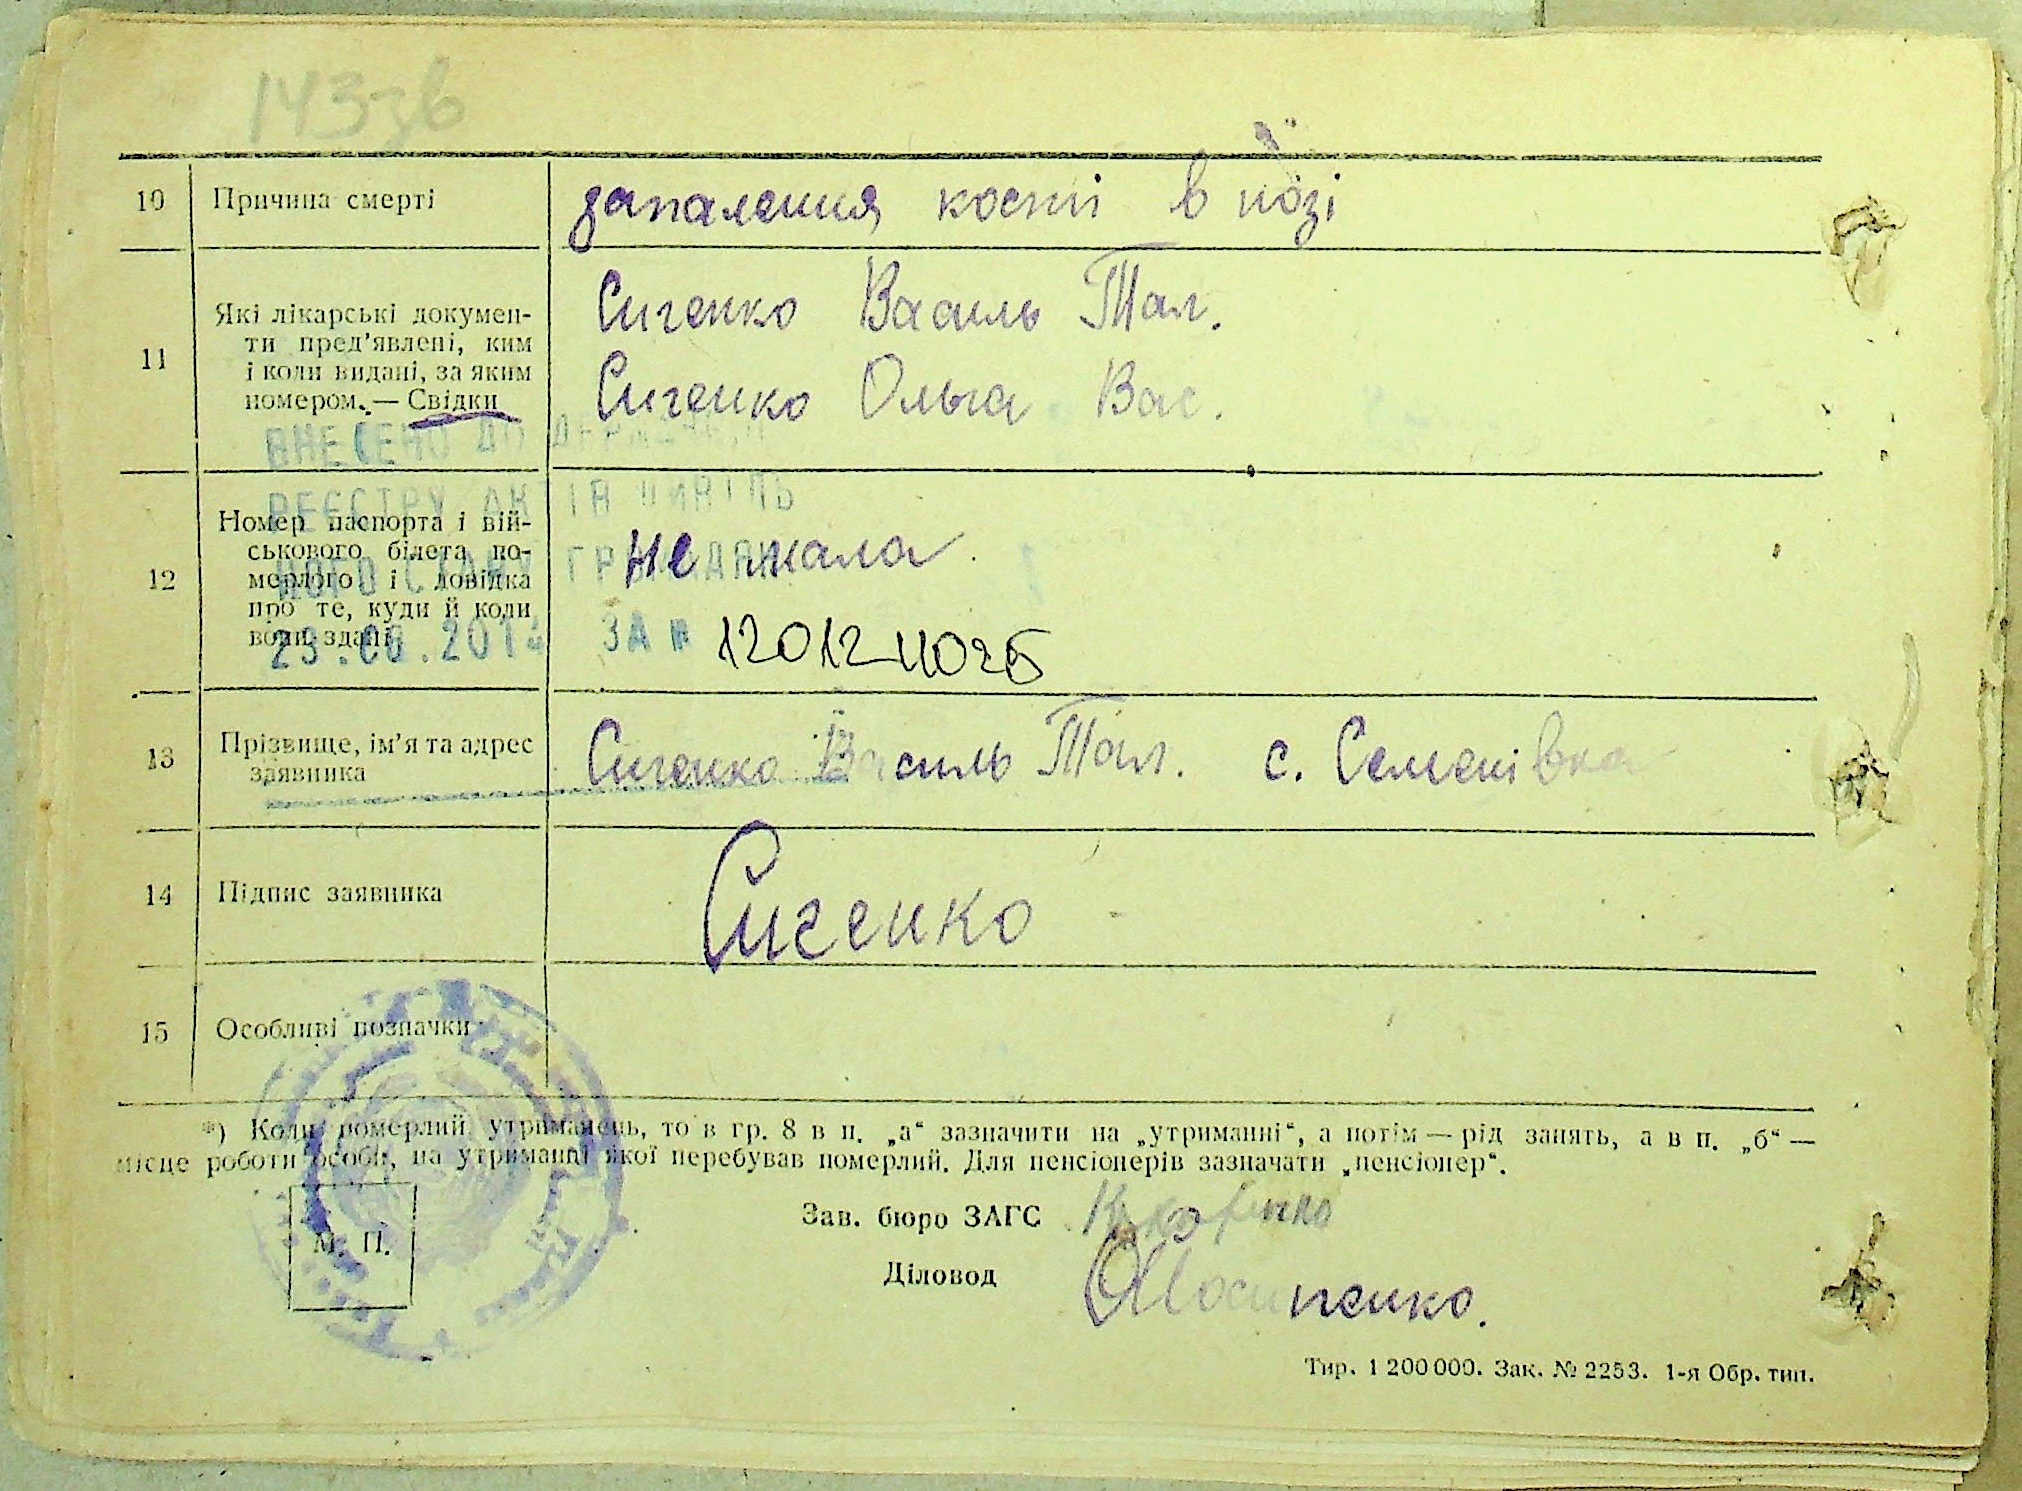 143зв
10 Причина смерті запалення кості в нозі
11 Які лікарські докумен-
ти пред'явлені, ким
і коли видані, за яким
номером. — Свідки
Сигенко Василь Тал.
Сигенко Ольга Вас.
ВНЕСЕНО ДО ДЕРЖАВН
РЕЄСТРУ АКТІВ ЦИВІЛЬ
НОГО СТАНУ ГРОМАДЯН
23.08.201 ЗА № 12012411025
12 Номер паспорта і вій-
ськового білета по-
мерлого і довідка
про те, куди й коли
вони здані
не мала
13 Прізвище, ім'я та адрес
заявника
Сигенко Василь Тал. с. Семенівка
14 Підпис заявника Сигенко
15 Особливі позначки
*) Коли померлий утриманець, то в гр. 8 в п. „а“ зазначити на „утриманні“, а потім — рід занять, а в п. „б“ —
місце роботи особи, на утриманні якої перебував померлий. Для пенсіонерів зазначати „пенсіонер“.
Зав. бюро ЗАГС
М. П.
Діловод
Тир. 1 200 000. Зак. № 2253. 1-я Обр. тип.